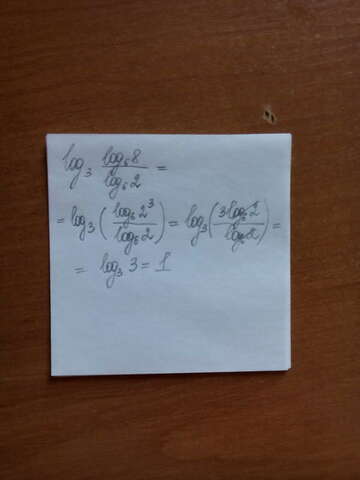 log₃ log₆8/log₆2 =
= log₃ (log₆2³/log₆2) = log₃(3log₆2/log₆2) =
= log₃ 3 = 1